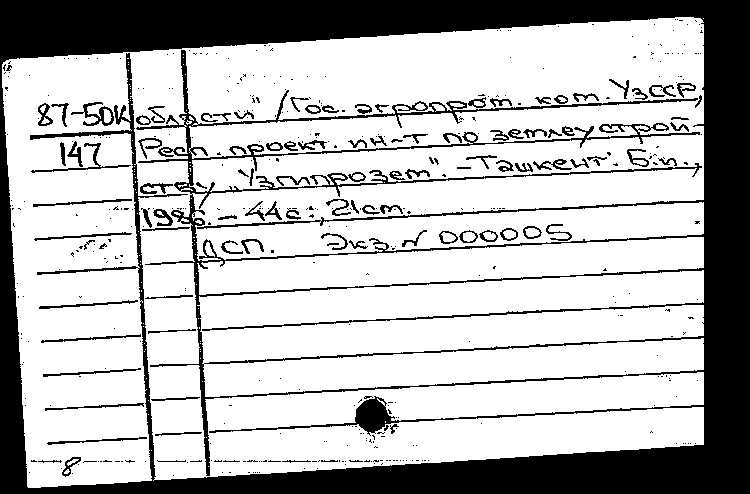 87-50К области" / Гос. агропром. ком. УзССР,
147 Респ. проект. ин-т по землеустрой-
ству „Узгипрозем". – Ташкент: Б.и.,
1986. – 44с.; 21см.
ДСП. Экз. № 000005
8